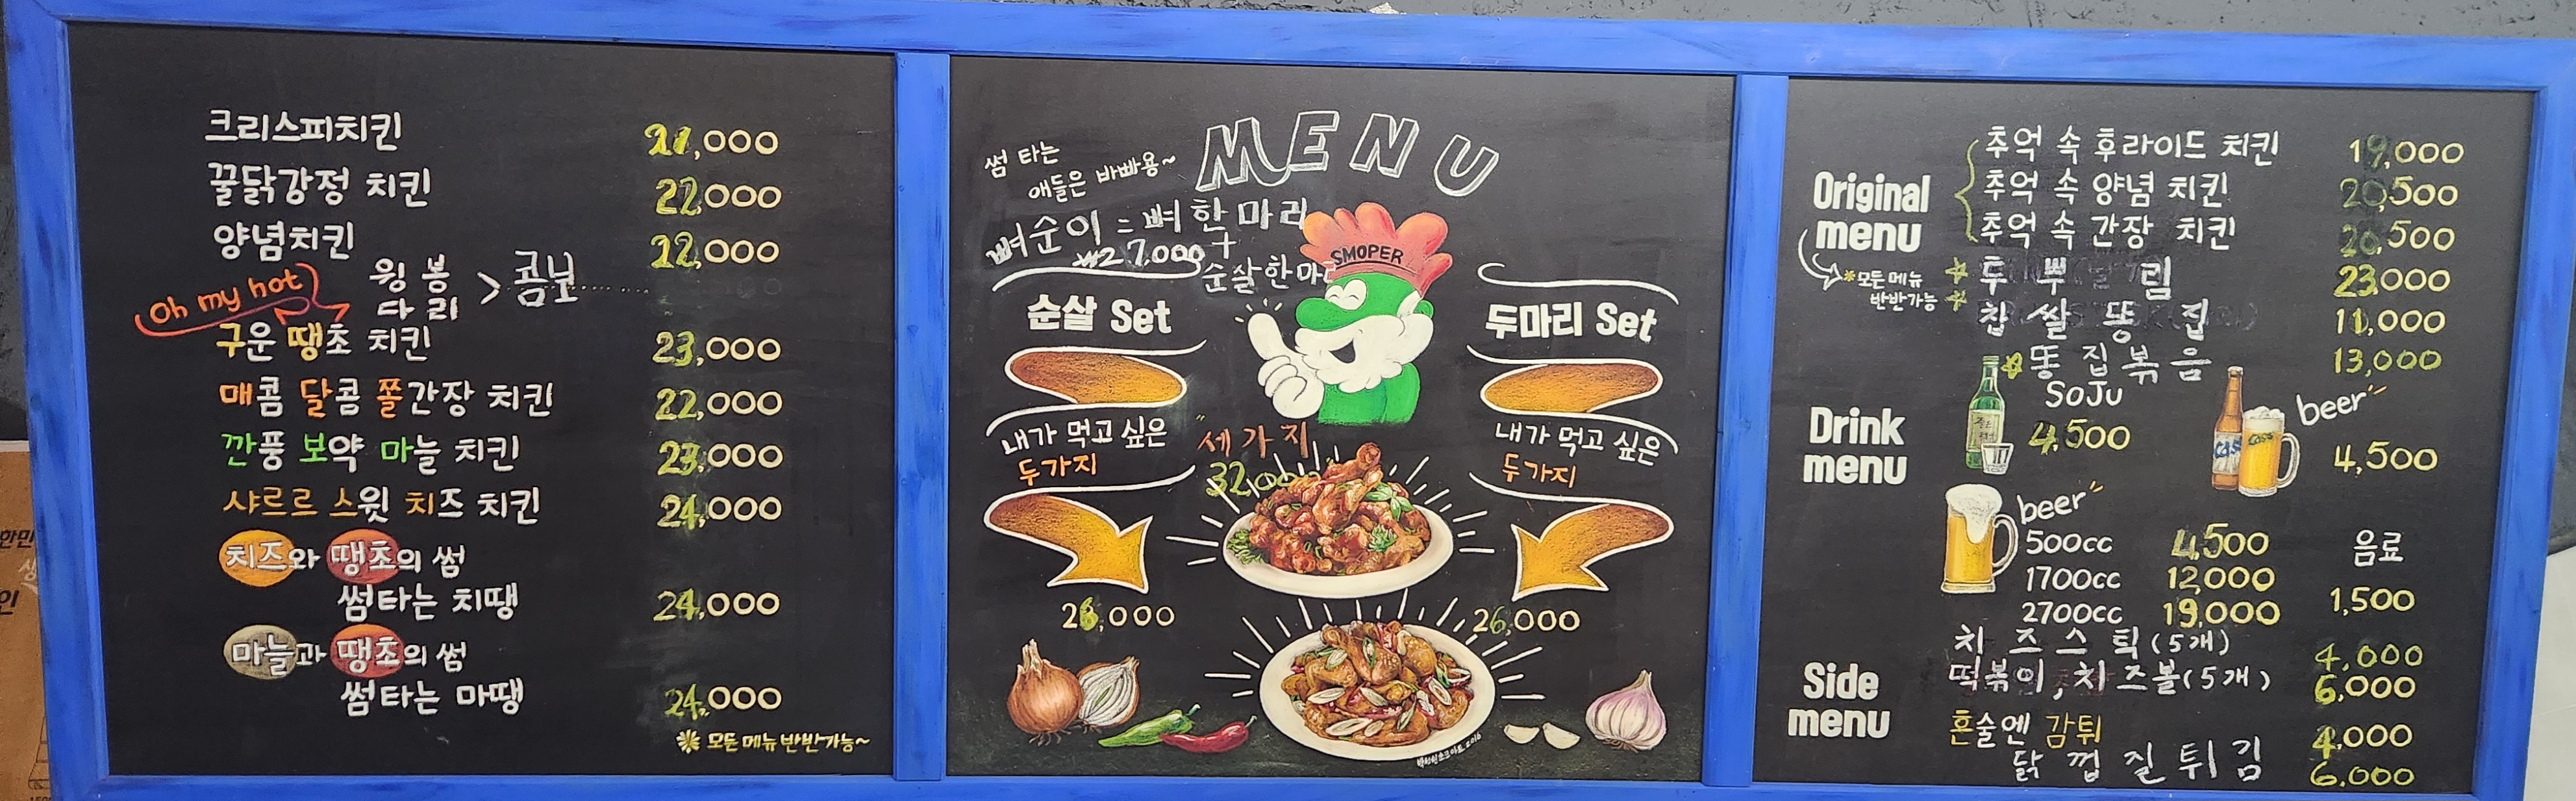 크리스피치킨 21,000
꿀닭강정 치킨 22,000
양념치킨 22,000
윙 봉
다리 > 콤보
Oh my hot
구운 땡초 치킨 23,000
매콤 달콤 쫄간장 치킨 22,000
깐풍 보약 마늘 치킨 23,000
샤르르 스윗 치즈 치킨 24,000
치즈와 땡초의 썸
썸타는 치땡 24,000
마늘과 땡초의 썸
썸타는 마땡 24,000
모든 메뉴 반반가능~
MENU
썸 타는
애들은 바빠용~
뼈순이 = 뼈 한 마리
₩27.000 +
순살한마
SMOPER
순살 Set
내가 먹고 싶은
두가지
26,000
"세가지
32,000
두마리 Set
내가 먹고 싶은
두가지
26,000
Original
menu
*모든 메뉴
반반가능
추억 속 후라이드 치킨 19,000
추억 속 양념 치킨 20,500
추억 속 간장 치킨 20,500
투 뿌 림 23,000
찹 쌀 똥 집 11,000
똥 집 볶 음 13,000
Drink
menu
SoJu
4,500
beer"
Cass
Cass
4,500
beer"
500cc 4,500
1700cc 12,000
2700cc 19,000
음료
1,500
Side
menu
치 즈 스 틱 (5개) 4,000
떡볶이, 치즈볼(5개) 6,000
혼술엔 감튀 4,000
닭 껍 질 튀 김 6,000